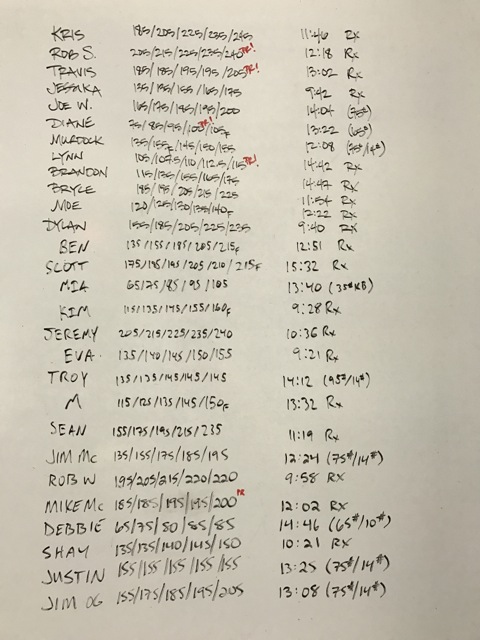 KRIS 185/205/225/235/245 11:46 Rx
ROB S. 205/215/225/235/240 PR! 12:18 Rx
TRAVIS 185/185/195/195/205 PR! 13:02 Rx
JESSIKA 135/145/155/165/175 9:42 Rx
JOE W. 165/175/185/195/200 14:04 (75#)
DIANE 75/85/95/100 PR!/105F 13:22 (65#)
MURDOCK 135/155F/145/150/155 12:08 (75#/14#)
LYNN 105/107.5/110/112.5/115 PR! 14:42 Rx
BRANDON 115/135/155/165/175 14:47 Rx
BRYCE 185/195/205/215/225 11:54 Rx
MOE 120/125/130/135/140F 12:22 Rx
DYLAN 155/185/205/225/235 9:40 Rx
BEN 135/155/185/205/215F 12:51 Rx
SCOTT 175/185/195/205/210/215F 15:32 Rx
MIA 65/75/85/95/105 13:40 (35#KB)
KIM 115/135/145/155/160F 9:28 Rx
JEREMY 205/215/225/235/240 10:36 Rx
EVA 135/140/145/150/155 9:21 Rx
TROY 135/135/145/145/145 14:12 (95#/14#)
M 115/125/135/145/150F 13:32 Rx
SEAN 155/175/195/215/235 11:19 Rx
JIM Mc 135/155/175/185/195 12:24 (75#/14#)
ROB W 195/205/215/220/220 9:58 Rx
MIKE Mc 185/185/195/195/200 PR 12:02 Rx
DEBBIE 65/75/80/85/85 14:46 (65#/10#)
SHAY 135/135/140/145/150 10:21 Rx
JUSTIN 155/155/155/155/155 13:25 (75#/14#)
JIM OG 155/175/185/195/205 13:08 (75#/14#)